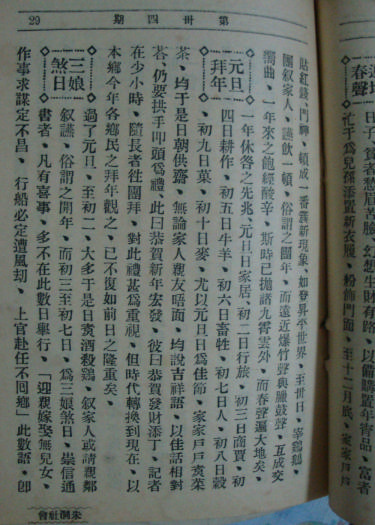 第卅四期
29
貼紅錢、門神、頓成一番嶄新現象、如登昇平世界、至卅日、宰鷄鵝、
團叙家人、讌飲一頓、俗謂之團年、而遠近爆竹聲與臘鼓聲、互成交
響曲、一年來之飽經酸辛、斯時已拋諸九霄雲外、而春聲遍大地矣、
元旦拜年
一年休咎之先兆、元旦日家居、初二日行旅、初三日商賈、初
四日耕作、初五日牛羊、初六日畜牲、初七日人、初八日穀
、初九日菓、初十日麥、尤以元旦日為佳節、家家戶戶煑菜
茶、均于是日朝供齋、無論家人親友晤面、均說吉祥語、以佳話相對
荅、仍要拱手叩頭為禮、此曰恭賀新年宏發、彼曰恭賀發財添丁、記者
在少小時、隨長者徃團拜、對此禮甚為重視、但時代轉換到現在、以
本鄉今年各鄉民之拜年觀之、已不復如前日之隆重矣、
三娘煞日
過了元旦、至初二、大多于是日煑酒殺鷄、叙家人或請親鄰
叙讌、俗謂之開年、而初三至初七日、爲三娘煞日、崇信通
書者、凡有喜事、多不在此數日舉行、「迎親嫁娶無兒女、
作事求謀定不昌、行船必定遭風刼、上官赴任不回鄉」此數語、卽
春聲
日子、貧者愁眉苦臉、幻想生財有路、以備購置年宵品、富者
忙于爲兒孫添置新衣履、粉飾門面、至十二月底、家家戶戶